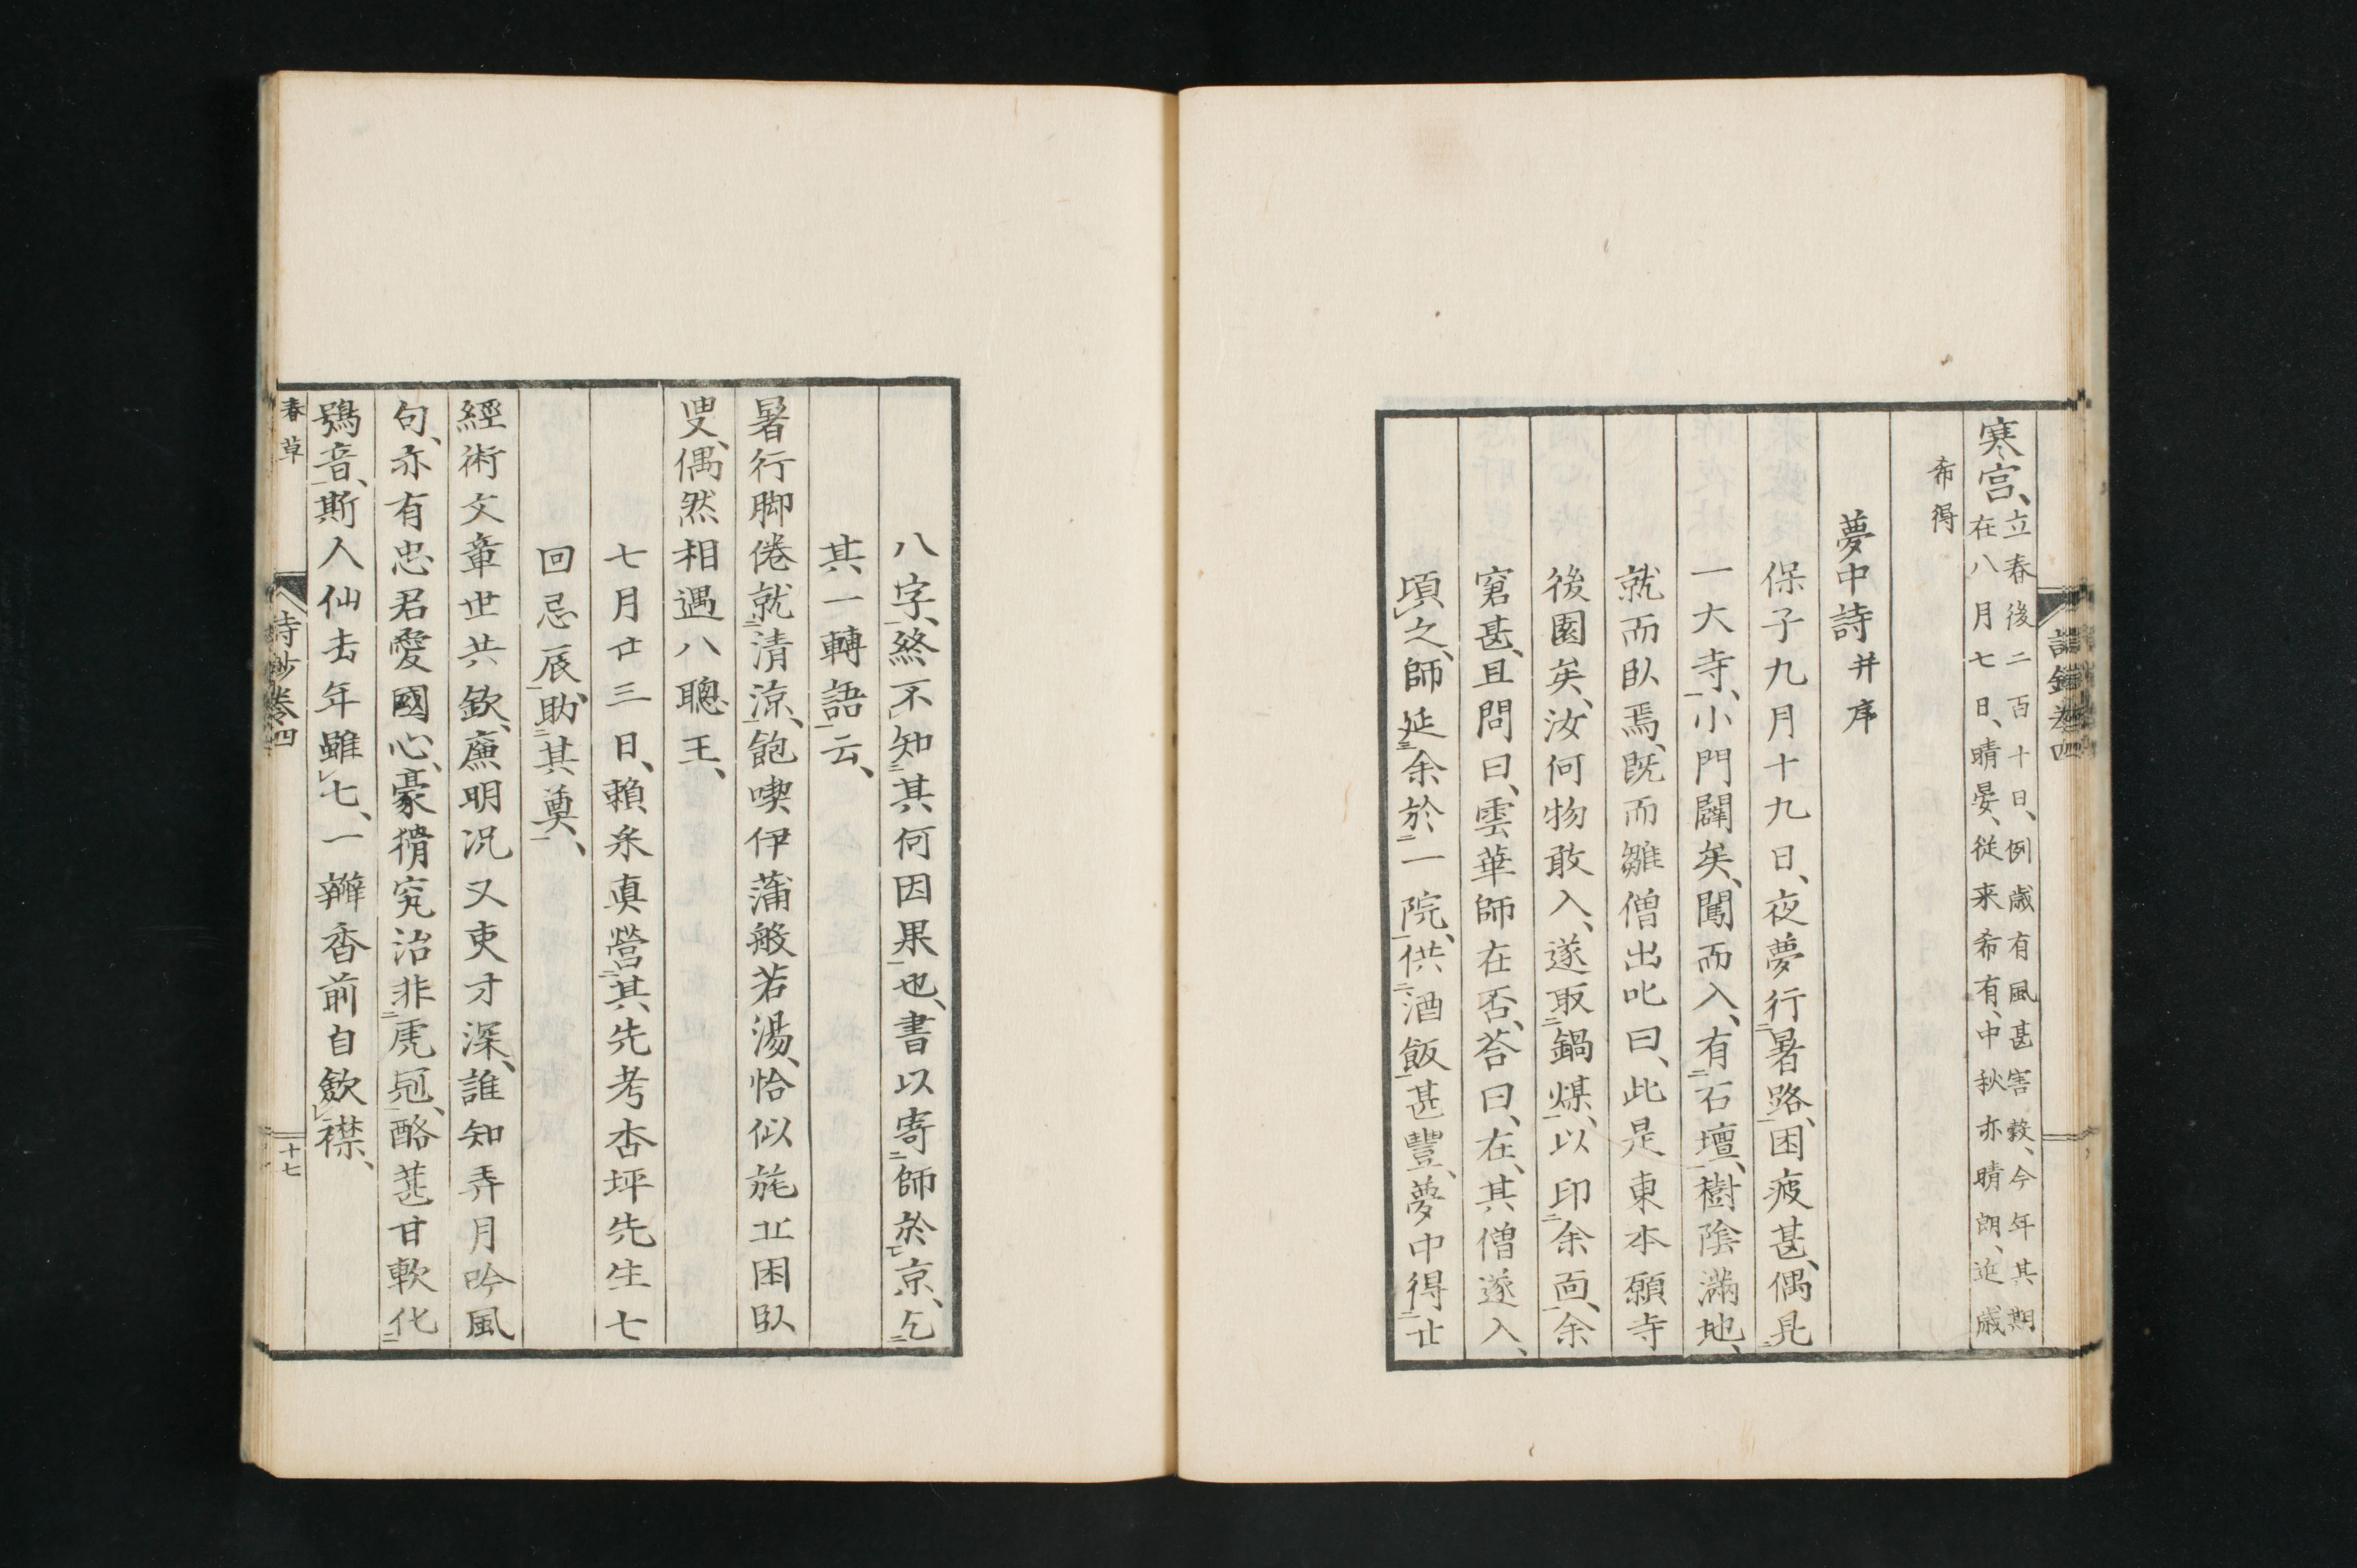 寒宮、立春後二百十日、例歳有風甚害穀、今年其期
在八月七日、晴晏、従来希有、中秋亦晴朗、近歳
希得
夢中詩并序
保子九月十九日、夜夢行暑路、困疲甚、偶見
一大寺、小門闢矣、闖而入、有石壇、樹陰滿地、
就而臥焉、既而雛僧出叱曰、此是東本願寺
後園矣、汝何物敢入、遂取鍋煤、以印余面、余
窘甚、且問曰、雲華師在否、荅曰、在、其僧遂入、
頃之、師延余於一院、供酒飯甚豐、夢中得廿
八字、終不知其何因果也、書以寄師於京、乞
其一轉語云、
暑行脚倦就清涼、飽喫伊蒲般若湯、恰似旄丘困臥
叟、偶然相遇八聰王、
七月廿三日、賴釆真營其先考杏坪先生七
回忌辰、助其奠、
經術文章世共欽、廉明況又吏才深、誰知弄月吟風
句、亦有忠君愛國心、豪猾究治非虎冠、酪葚甘軟化
鴞音、斯人仙去年雖七、一瓣香前自斂襟、
春草
詩鈔卷四
十七